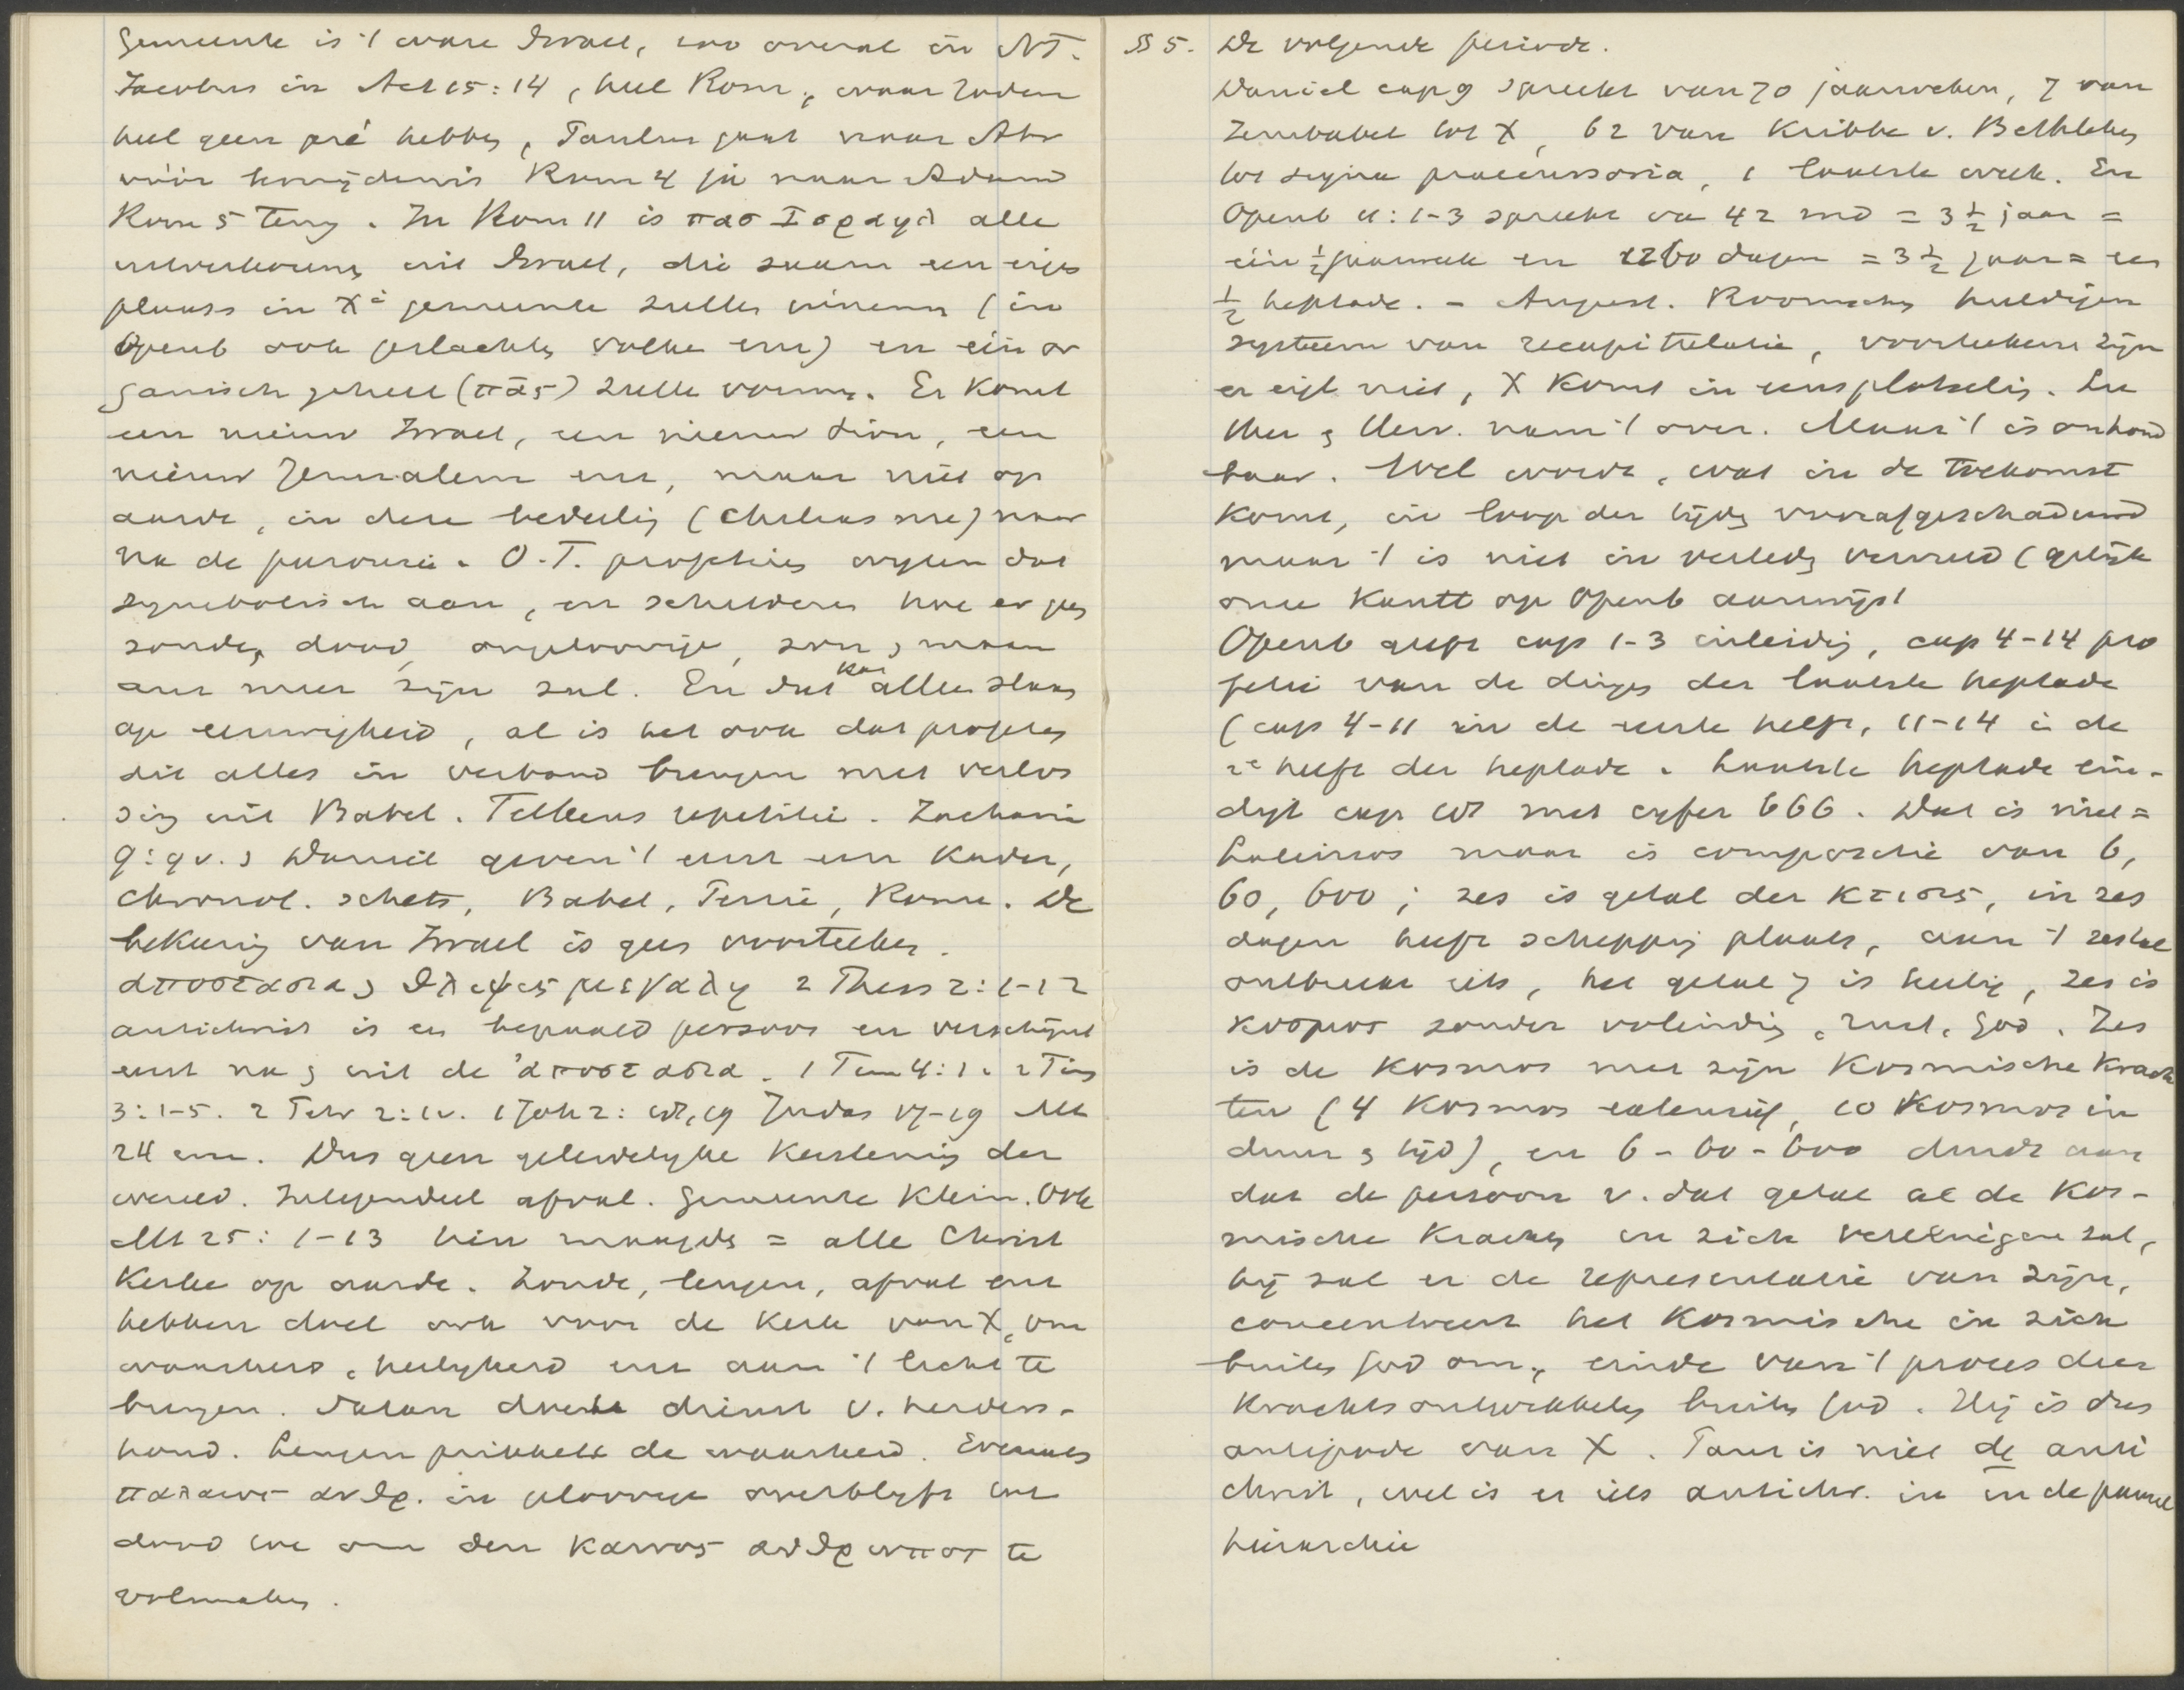 Gemeente is 't ware Israel, zoo overal in NT.
Jacobus in Act 15:14, heel Rom., waar Joden
heel geen pré hebben, Paulus gaat naar Abr
vóór besnijdenis Rom 4 ja naar Adam
Rom 5 terug. In Rom 11 is πασ Ισραηλ alle
uitverkorenen uit Israel, die saam een eigen
plaats in Xs gemeente zullen innemen (in
Openb ook geslachten volken enz) en één or
ganisch geheel (πᾶς) zullen vormen. Er komt
een nieuw Israel, een nieuw Sion, een
nieuw Jeruzalem enz, maar niet op
aarde, in deze bedeeling (Chiliasme) maar
na de parousie. O.T. profetieën wijzen dat
symbolisch aan, en schilderen hoe er geen
zonde, dood, ongeloovige, zon, maan
enz meer zijn zal. En dat kan alleen slaan
op eeuwigheid, al is het ook dat profeten
dit alles in verband brengen met verlos
sing uit Babel. Telkens repetitie. Zacharia
9:9v. & Daniel geven 't eerst een kader,
chronol. schets, Babel, Perzië, Rome. De
bekeering van Israel is geen voorteeken.
αποστασια & θλιψις μεγαλη 2 Thess 2:1-12
antichrist is een bepaald persoon en verschijnt
eerst na & uit de ἀποστασια. 1 Tim 4:1. 2 Tim
3:1-5. 2 Petr 2:1v. 1 Joh 2:18,19 Judas 17-19 Mt
24 enz. Dus geen geleidelijke kerstening der
wereld. Integendeel afval. Gemeente klein. Ook
Mt 25:1-13 tien maagden = alle Christ
Kerken op aarde. Zonde, leugen, afval enz
hebben doel ook voor de Kerk van X, om
waarheid, heiligheid enz aan 't licht te
brengen. Satan doet dienst v. herders-
hond. Leugen prikkelt de waarheid. Evenals
παλαιος ανθρ. in geloovige overblijft tot
dood toe om den καινος ανθρωπος te
volmaken.
§ 5. De volgende periode.
Daniel cap 9 spreekt van 70 jaarweken, 7 van
Zerubabel tot X, 62 van Kribbe v. Bethlehem
tot signa praecursoria, 1 laatste week. En
Openb 11:1-3 spreekt van 42 mnd = 3½ jaar =
één ½ jaarweek en 1260 dagen = 3½ jaar = een
½ heptade. - August. Roomschen huldigen
systeem van recapitulatie, voorteekens zijn
er eigl niet, X komt in eens plotseling. Lu
ther & Herv. nam 't over. Maar 't is onhoud
baar. Wel wordt, wat in de toekomst
komt, in loop der tijden voorafgeschaduwd
maar 't is niet in verleden vervuld (gelijk
onze Kantt op Openb aanwijst
Openb geeft cap 1-3 inleiding, cap 4-14 pro
fetie van de dingen der laatste heptade
(cap 4-11 in de eerste helft, 11-14 in de
2e helft der heptade. Laatste heptade ein-
digt cap 13 met cijfer 666. Dat is niet =
Lateinos maar is compositie van 6,
60, 600; zes is getal der κτισις, in zes
dagen heeft schepping plaats, aan 't zestal
ontbreekt iets, het getal 7 is heilig, zes is
κοσμος zonder voleinding, rust, God. Zes
is de Kosmos met zijn Kosmische Krach
ten (4 Kosmos extensief, 10 Kosmos in
duur & tijd), en 6-60-600 duidt aan
dat de persoon v. dat getal al de Kos-
mische Krachten in zich vereenigen zal,
hij zal er de representatie van zijn,
concentreert het Kosmische in zich
buiten God om, einde van 't proces der
Krachtsontwikkeling buiten God. Hij is dus
antipode van X. Paus is niet de anti
christ, wel is er iets antichr. in in de pausel
hierarchie